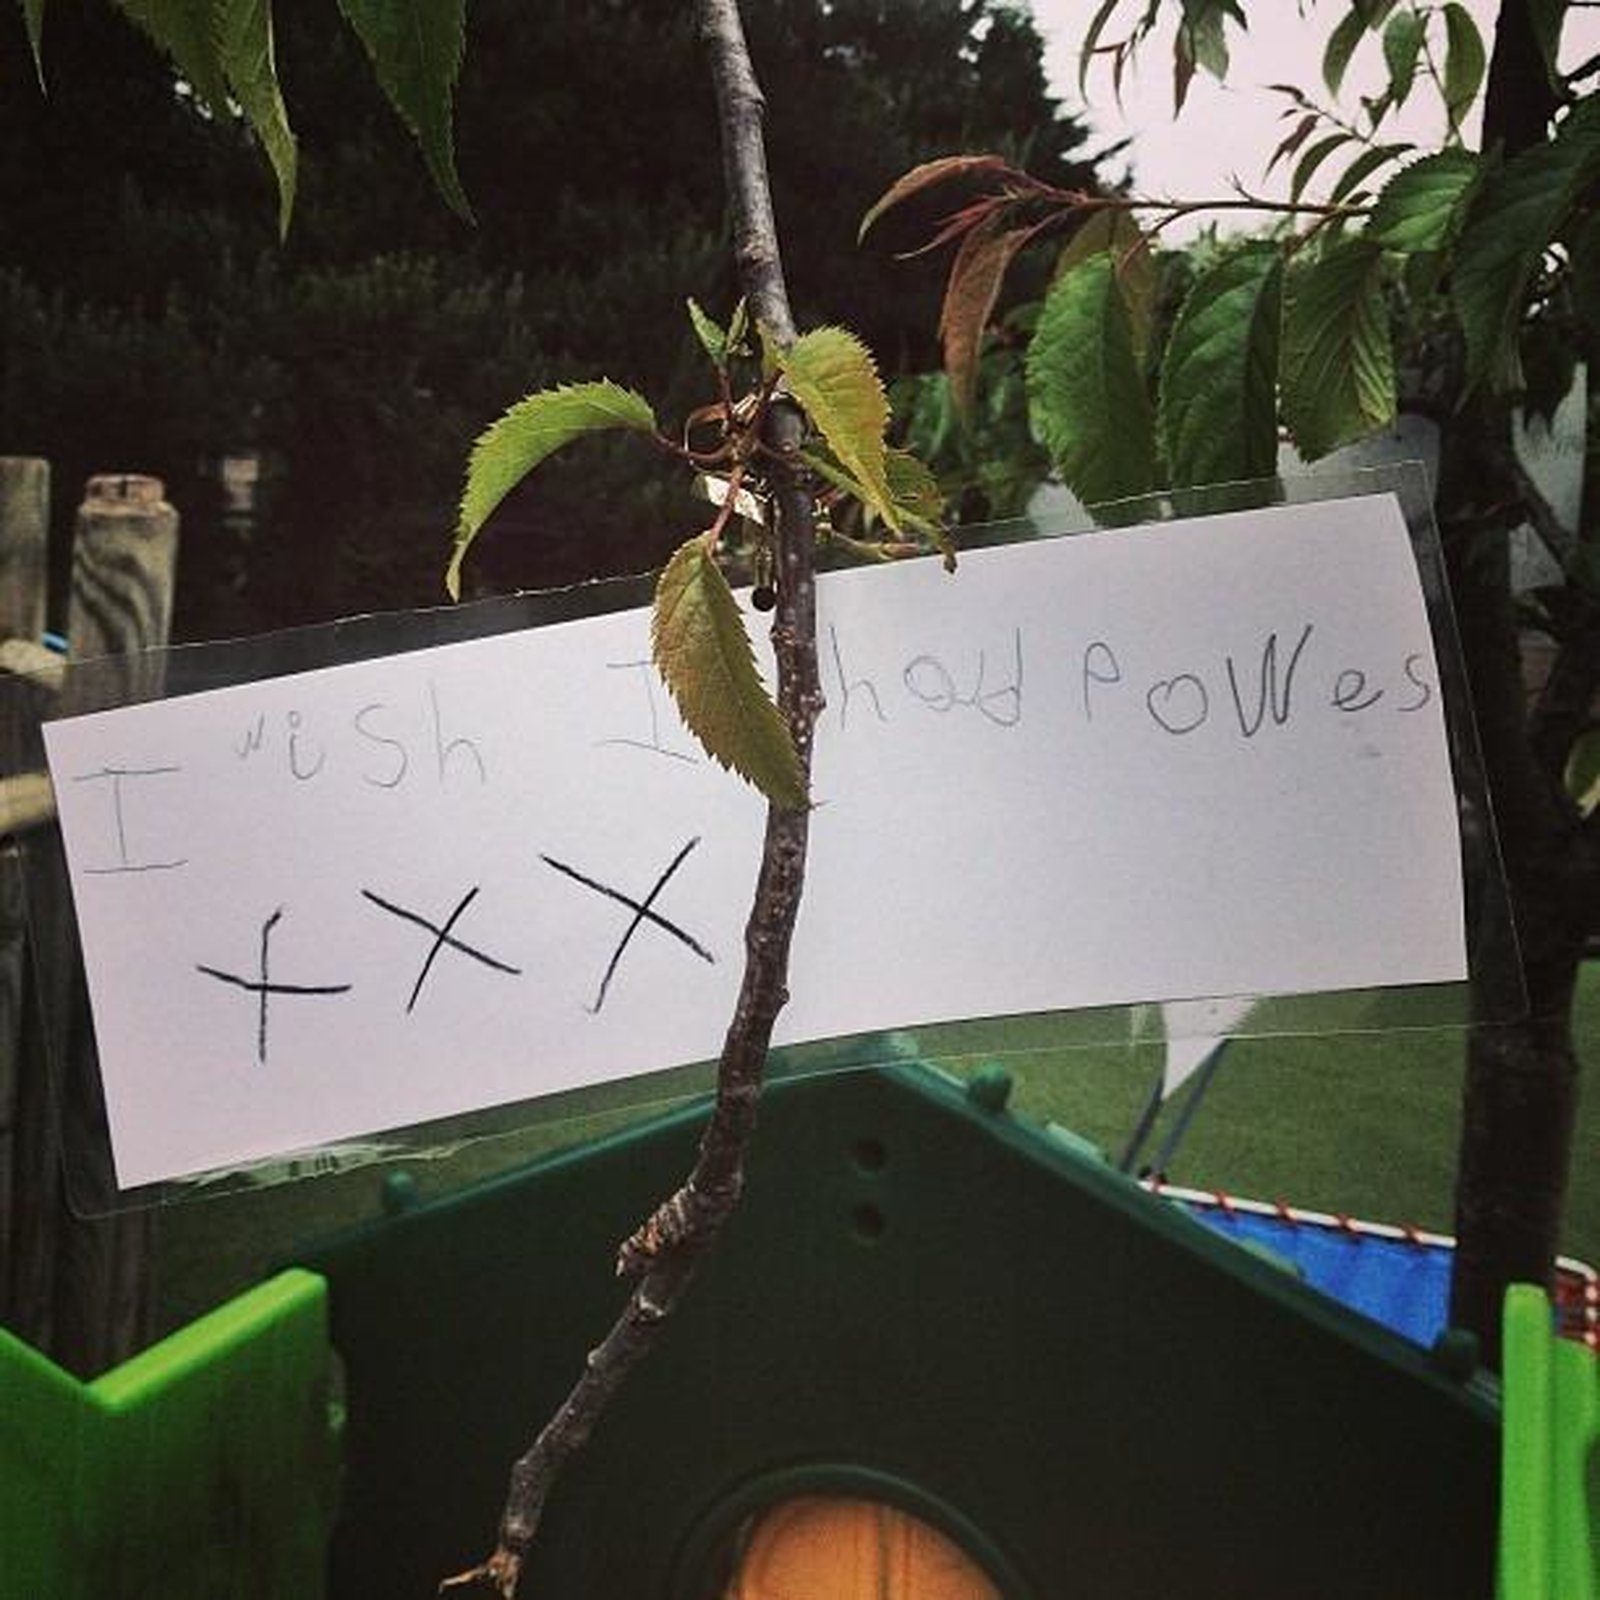 I wish I had Powes
xxx